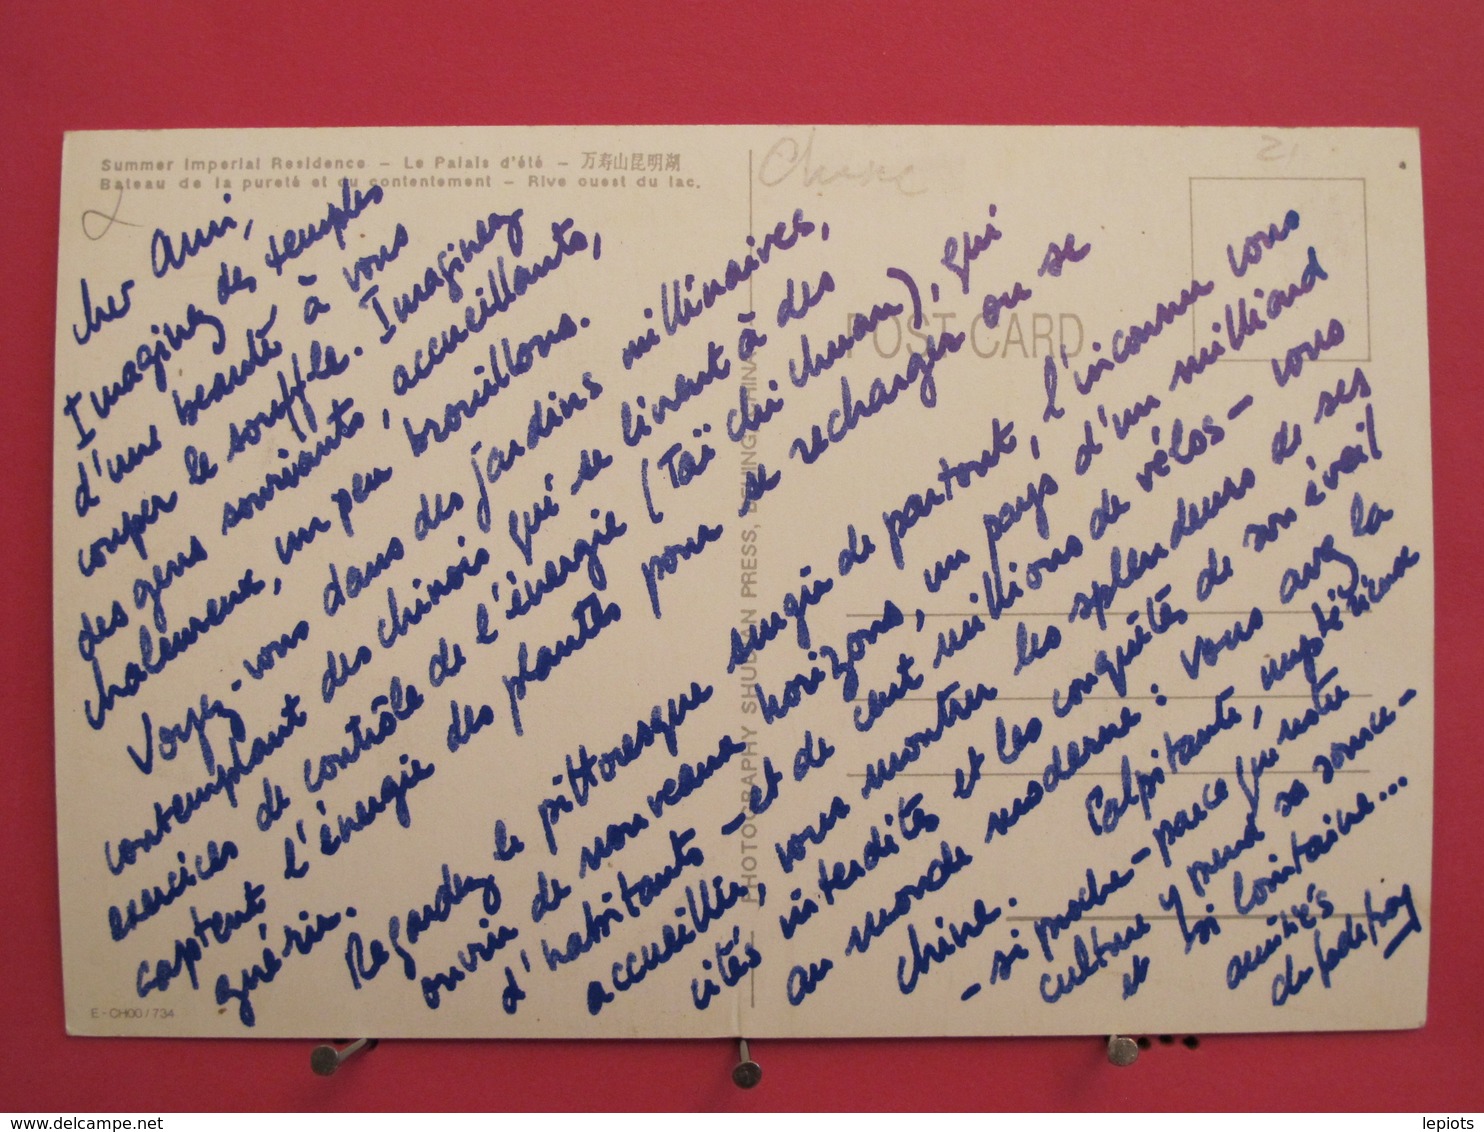 Summer Imperial Residence – Le Palais d'été – 万寿山昆明湖
Bateau de la pureté et du contentement – Rive ouest du lac.
Chine
21
POST CARD
PHOTOGRAPHY SHUEAN PRESS, BEIJING, CHINA
E-CH00/734
cher Ami,
Imaginez des temples
d'une beauté à vous
couper le souffle. Imaginez
des gens souriants, accueillants,
chaleureux, un peu brouillons.
Voyez-vous dans des jardins millinaires,
contemplant des chinois qui se livrent à des
exercices de contrôle de l'énergie (Taï chi chuan), qui
captent l'énergie des plantes pour se recharger ou se
guérir.
Regardez le pittoresque surgir de partout, l'inconnu vous
ouvrir de nouveaux horizons, un pays d'un milliard
d'habitants – et de cent millions de vélos – vous
accueillir, vous montrer les splendeurs de ses
cités interdites et les conquêtes de son éveil
au monde moderne : vous avez la
chine. Palpitante, impétueuse
– si proche – parce que notre
culture y prend sa source –
et si lointaine...
amitiés